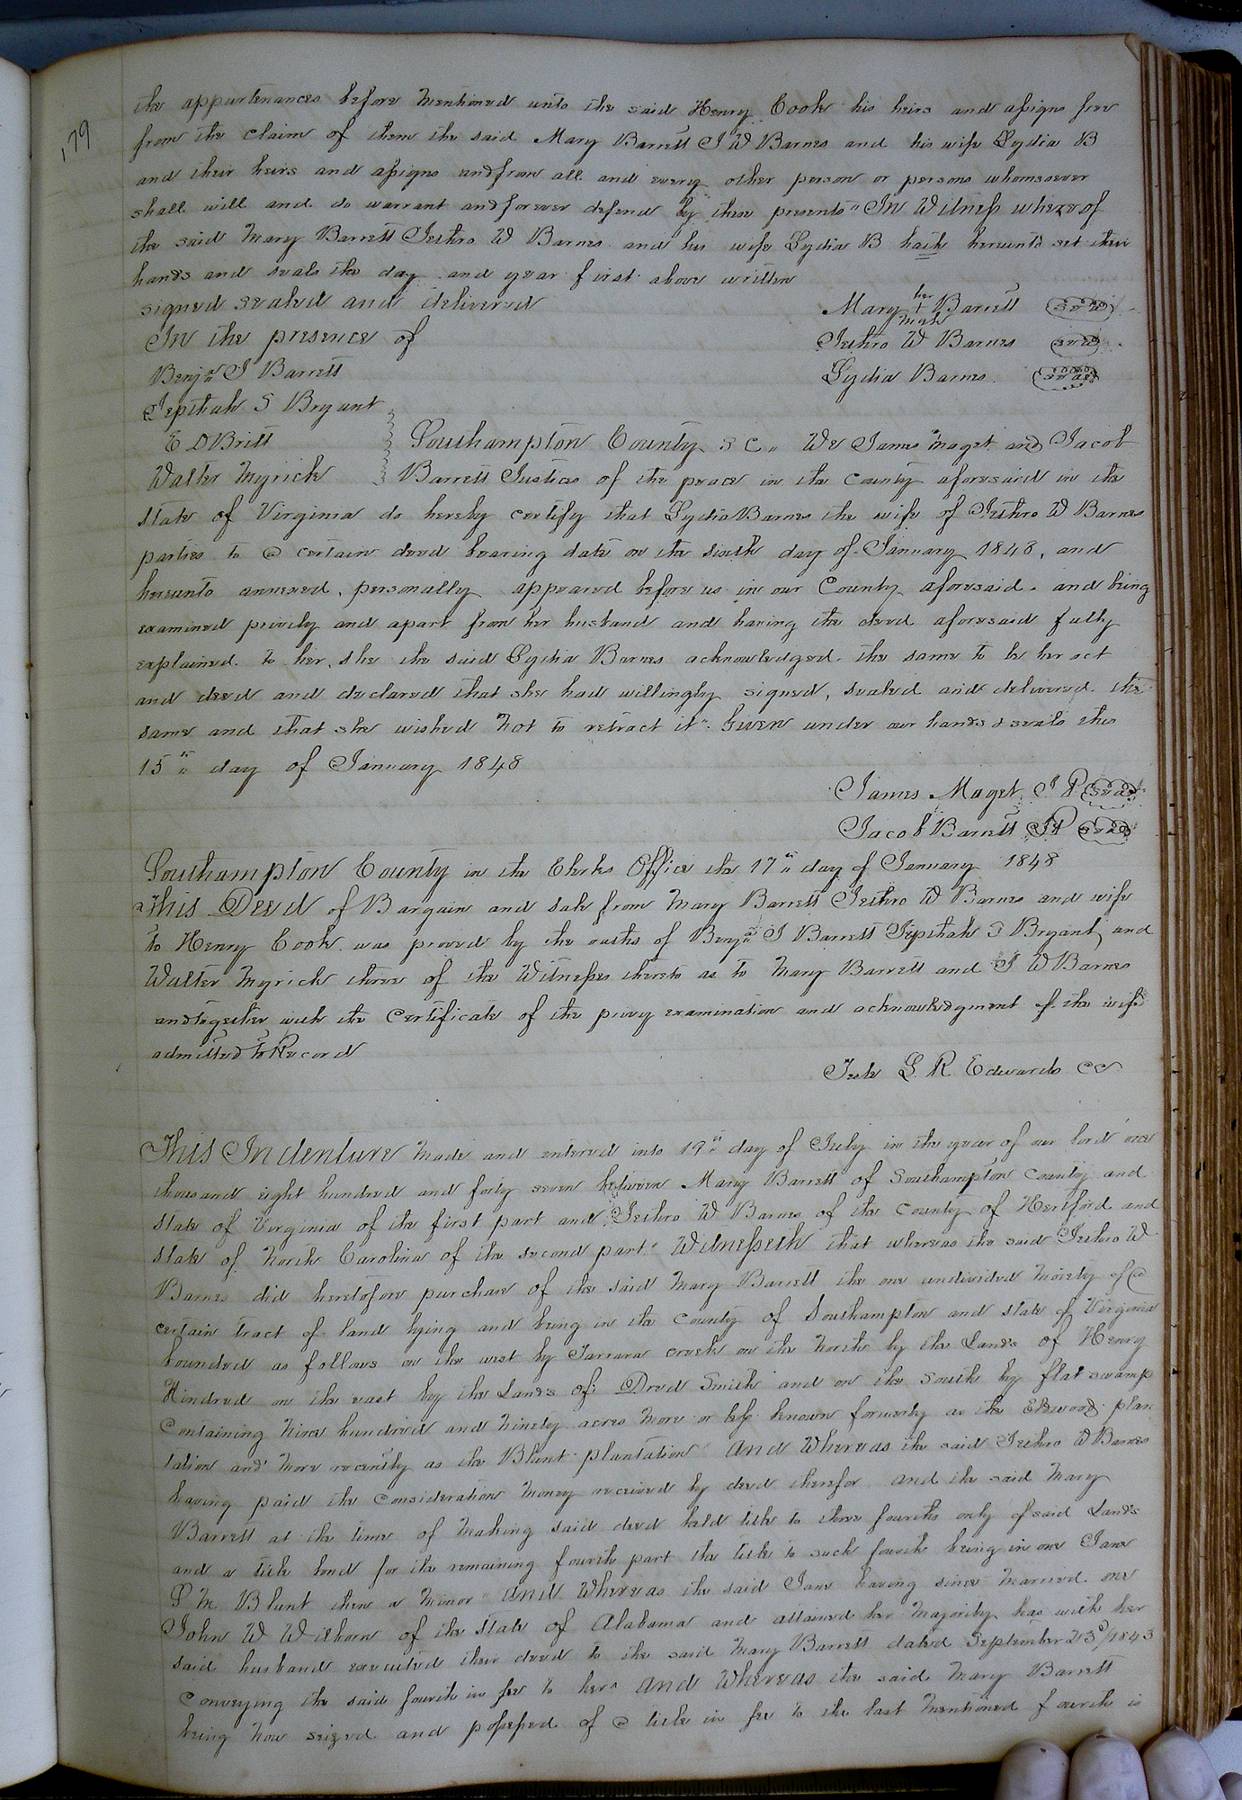 179
the appurtenances before mentioned unto the said Henry Cook his heirs and assigns free
from the claim of them the said Mary Barrett J W Barnes and his wife Lydia B
and their heirs and assigns and from all and every other person or persons whomsoever
shall will and do warrant and forever defend by these presents" In Witness whereof
the said Mary Barrett Jethro W Barnes and his wife Lydia B hath hereunto set their
hands and seals the day and year first above written
signed sealed and delivered
In the presence of
Benjn J Barrett
Jepthah S Bryant
E D Britt
Walter Myrick
Mary her + mark Barrett Seal
Jethro W Barnes Seal
Lydia Barnes Seal
Southampton County SC" We James Maget and Jacob
Barrett Justices of the peace in the County aforesaid in the
state of Virginia do hereby certify that Lydia Barnes the wife of Jethro W Barnes
parties to a certain deed bearing date on the sixth day of January 1848, and
hereunto annexed, personally appeared before us in our County aforesaid. and being
examined privily and apart from her husband and having the deed aforesaid fully
explained to her, she the said Lydia Barnes acknowledged the same to be her act
and deed and declared that she had willingly signed, sealed and delivered the
same and that she wished not to retract it" Given under our hands & seals this
15th day of January 1848
James Maget J P Seal
Jacob Barrett JP Seal
Southampton County in the Clerks Office the 17th day of January 1848
This Deed of Bargain and sale from Mary Barrett Jethro W Barnes and wife
to Henry Cook was proved by the oaths of Benjn J Barrett Jepthah S Bryant and
Walter Myrick three of the Witnesses thereto as to Mary Barrett and J W Barnes
and together with the Certificate of the privy examination and acknowledgment of the wife
admitted to Record
Teste L R Edwards CC
This Indenture made and entered into 19th day of July in the year of our lord one
thousand eight hundred and forty seven between Mary Barrett of Southampton County and
state of Virginia of the first part and Jethro W Barnes of the County of Hertford and
state of North Carolina of the second part" Witnesseth that whereas the said Jethro W
Barnes did heretofore purchase of the said Mary Barrett the one undivided moiety of a
certain tract of land lying and being in the County of Southampton and state of Virginia
bounded as follows on the west by Tarrara creek on the North by the Lands of Henry
Kindred on the east by the Lands of Dred Smith and on the south by flat swamp
Containing Nine hundred and Ninety acres more or less known formerly as the Elswood plan
tation and more recently as the Blunt plantation And Whereas the said Jethro W Barnes
having paid the consideration money received by deed therefor and the said Mary
Barrett at the time of making said deed held title to three fourths only of said Lands
and a title bond for the remaining fourth part the title to such fourth being in one Jane
P M Blunt then a minor And Whereas the said Jane having since married one
John W Wilborn of the state of Alabama and attained her majority has with her
said husband executed their deed to the said Mary Barrett dated September 23d/1843
conveying the said fourth in fee to her" And Whereas the said Mary Barrett
being now seized and possessed of a title in fee to the last mentioned fourth is